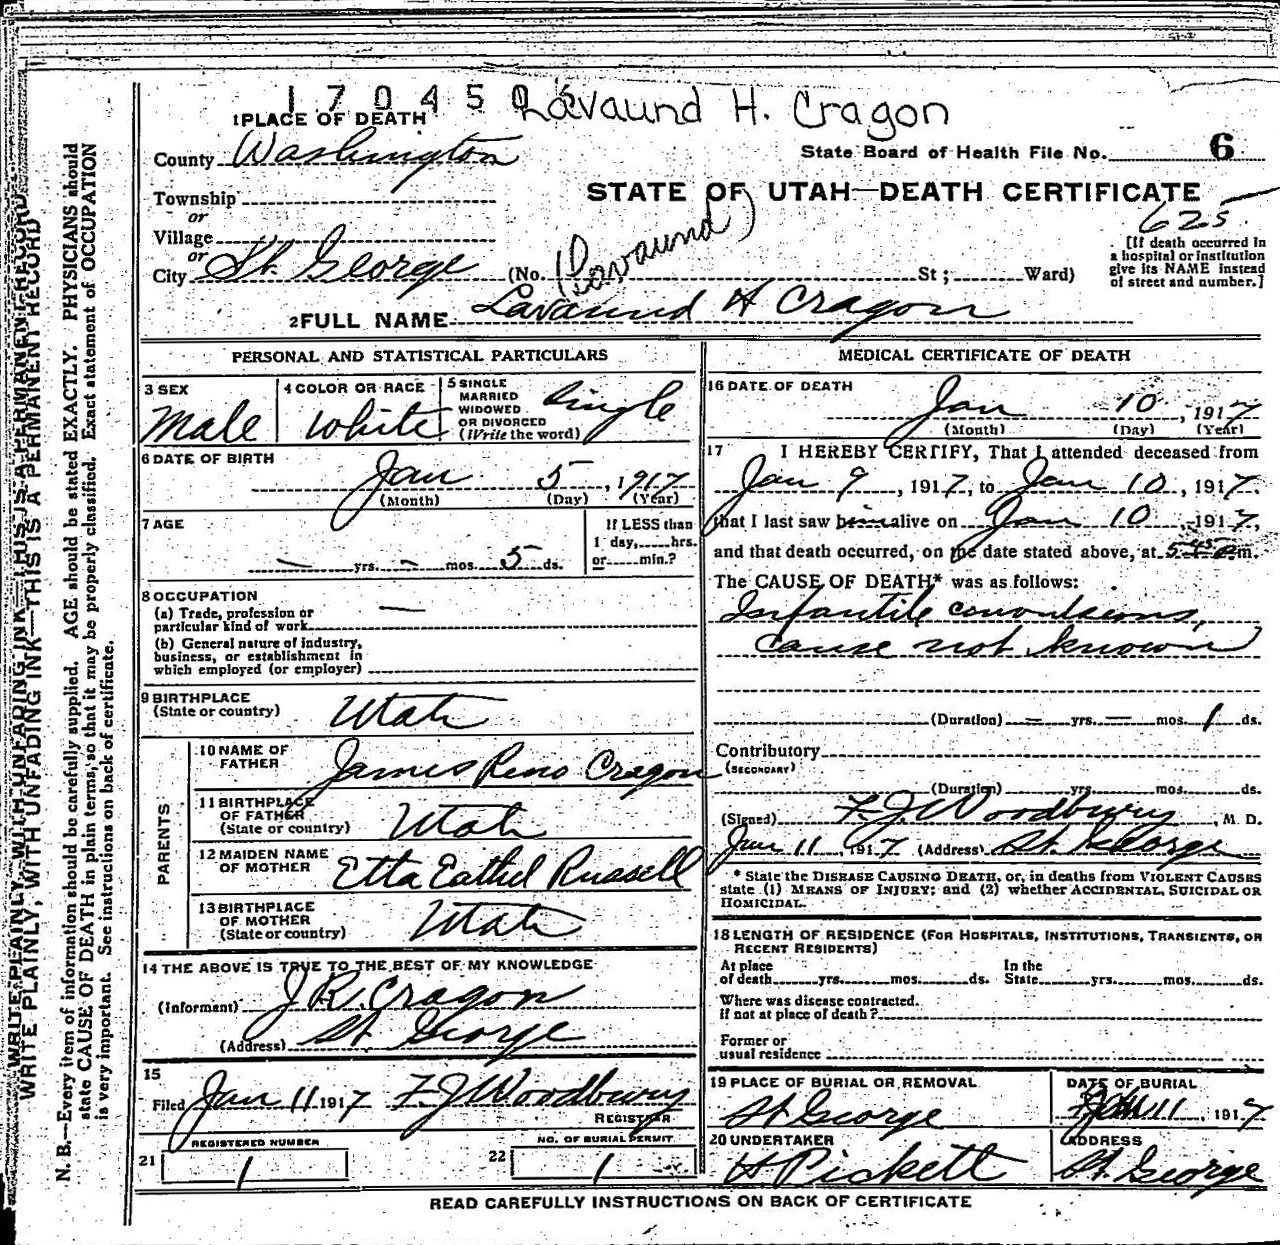 1704505
Lavaund H. Cragon
1 PLACE OF DEATH
County Washington
State Board of Health File No. 6
Township
or
STATE OF UTAH—DEATH CERTIFICATE
625
Village
or
City St. George (No. (Lavaund) St; Ward)
[If death occurred in
a hospital or institution
give its NAME instead
of street and number.]
2 FULL NAME Lavaund H Cragon
PERSONAL AND STATISTICAL PARTICULARS
3 SEX
Male
4 COLOR OR RACE
White
5 SINGLE
MARRIED
WIDOWED
OR DIVORCED
(Write the word)
Single
6 DATE OF BIRTH
Jan 5, 1917
(Month) (Day) (Year)
7 AGE
— yrs. — mos. 5 ds.
If LESS than
1 day, hrs.
or min.?
8 OCCUPATION
(a) Trade, profession or
particular kind of work —
(b) General nature of industry,
business, or establishment in
which employed (or employer)
9 BIRTHPLACE
(State or country) Utah
PARENTS
10 NAME OF
FATHER James Reno Cragon
11 BIRTHPLACE
OF FATHER
(State or country) Utah
12 MAIDEN NAME
OF MOTHER Etta Eathel Russell
13 BIRTHPLACE
OF MOTHER
(State or country) Utah
14 THE ABOVE IS TRUE TO THE BEST OF MY KNOWLEDGE
(Informant) J R. Cragon
(Address) St George
15
Filed Jan 11 1917 F. J Woodbury
REGISTRAR
REGISTERED NUMBER
21 1
NO. OF BURIAL PERMIT
22 1
MEDICAL CERTIFICATE OF DEATH
16 DATE OF DEATH
Jan 10, 1917
(Month) (Day) (Year)
17 I HEREBY CERTIFY, That I attended deceased from
Jan 9, 1917, to Jan 10, 1917.
that I last saw him alive on Jan 10, 1917,
and that death occurred, on the date stated above, at 5 45 m.
The CAUSE OF DEATH* was as follows:
Infantile convulsions,
cause not known
(Duration) — yrs. — mos. 1 ds.
Contributory
(SECONDARY)
(Duration) yrs. mos. ds.
(Signed) F. J. Woodbury, M. D.
Jan 11, 1917 (Address) St. George
* State the DISEASE CAUSING DEATH, or, in deaths from VIOLENT CAUSES
state (1) MEANS OF INJURY; and (2) whether ACCIDENTAL, SUICIDAL OR
HOMICIDAL.
18 LENGTH OF RESIDENCE (FOR HOSPITALS, INSTITUTIONS, TRANSIENTS, OR
RECENT RESIDENTS)
At place
of death yrs. mos. ds.
In the
State yrs. mos. ds.
Where was disease contracted.
if not at place of death?
Former or
usual residence
19 PLACE OF BURIAL OR REMOVAL
St George
DATE OF BURIAL
Jan 11, 1917
20 UNDERTAKER
H Pickett
ADDRESS
St. George
READ CAREFULLY INSTRUCTIONS ON BACK OF CERTIFICATE
WRITE PLAINLY, WITH UNFADING INK—THIS IS A PERMANENT RECORD
WRITE PLAINLY, WITH UNFADING INK—THIS IS A PERMANENT RECORD
N. B.—Every item of information should be carefully supplied. AGE should be stated EXACTLY. PHYSICIANS should
state CAUSE OF DEATH in plain terms, so that it may be properly classified. Exact statement of OCCUPATION
is very important. See instructions on back of certificate.